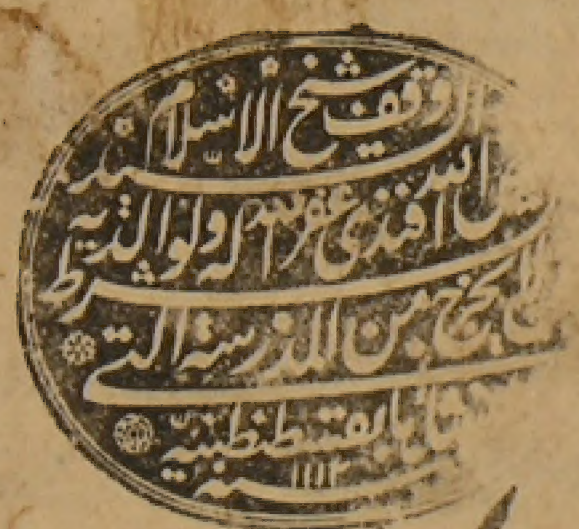 وقف شيخ الاسلام السيد
الله افندى غفر الله له ولوالديه بشرط
لا يخرج من المدرسة التى
بقسطنطنية
سنه ١١١٢